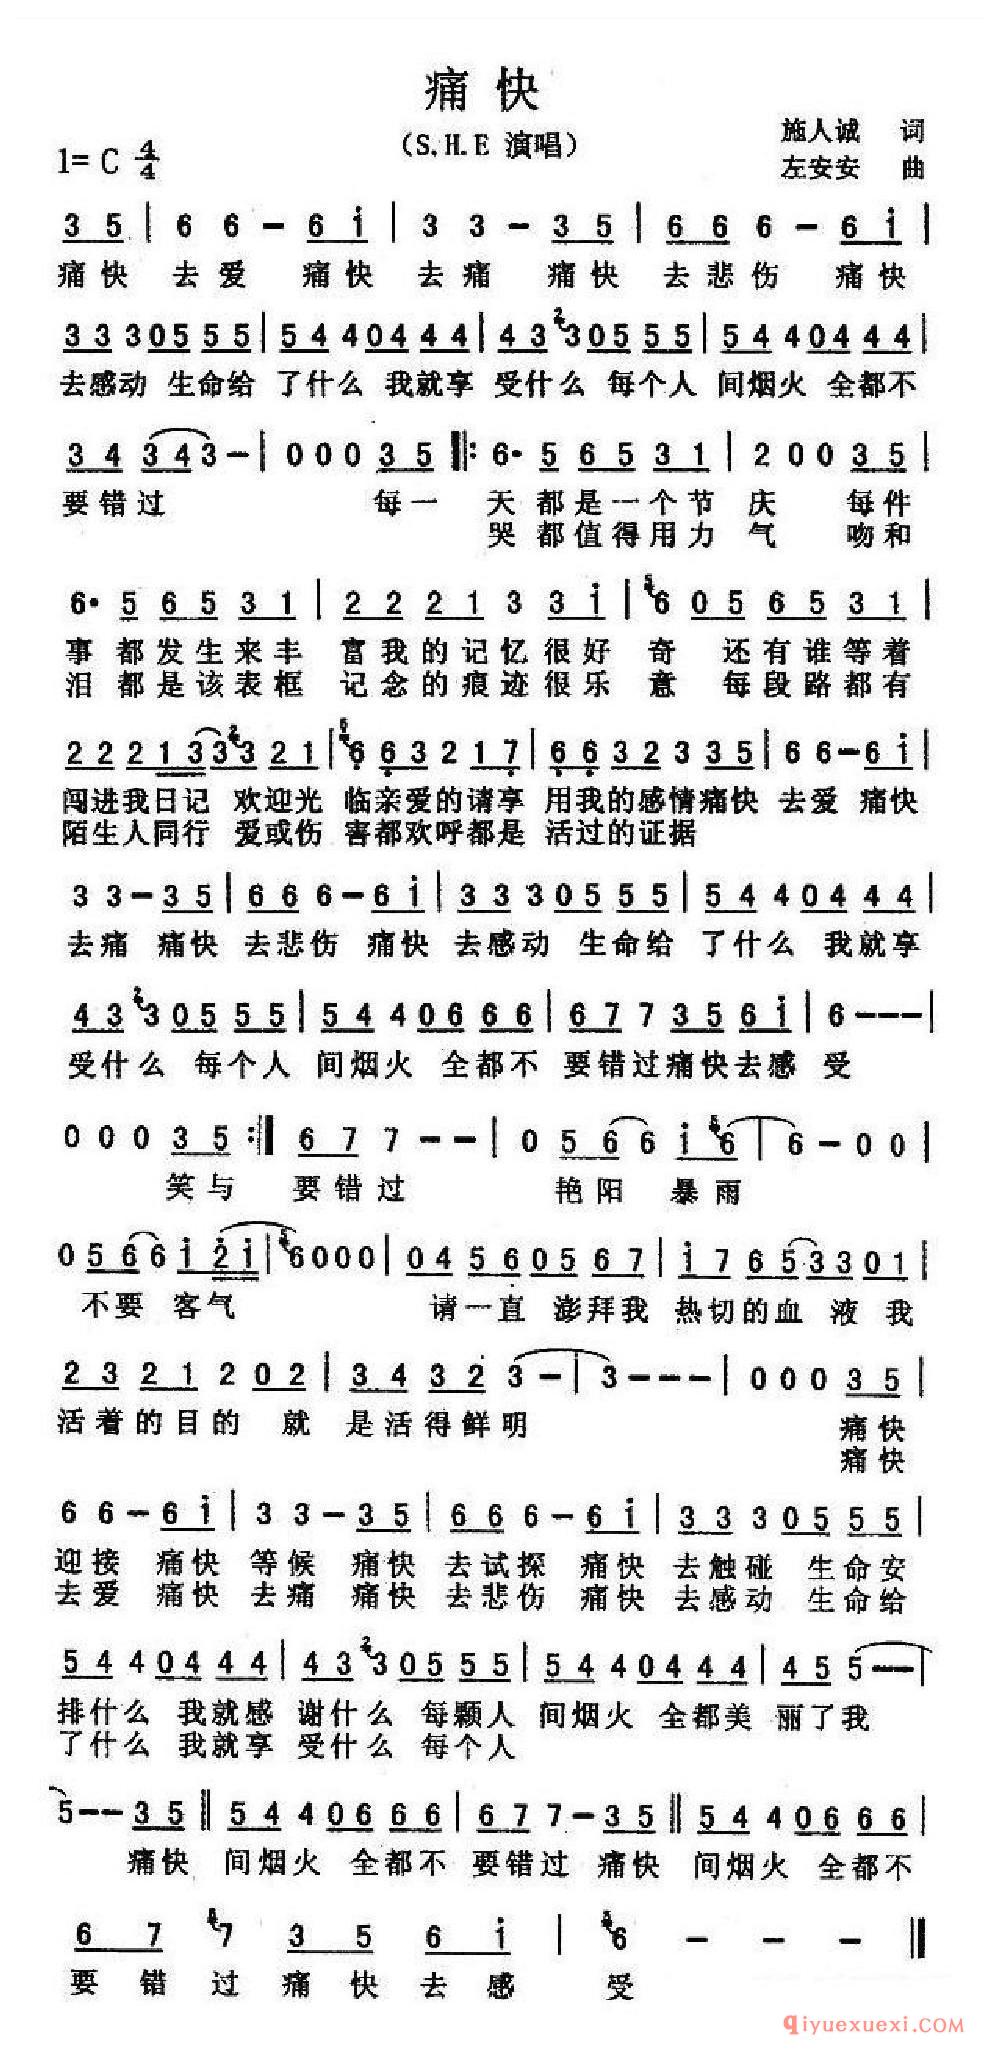 痛快
(S.H.E 演唱)
施人诚 词
1= C 4/4
左安安 曲
3 5 | 6 6 - 6 i | 3 3 - 3 5 | 6 6 6 - 6 i |
痛快 去爱 痛快 去痛 痛快 去悲伤 痛快
3 3 3 0 5 5 5 | 5 4 4 0 4 4 4 | 4 3 2 3 0 5 5 5 | 5 4 4 0 4 4 4 |
去感动 生命给 了什么 我就享 受什么 每个人 间烟火 全都不
3 4 3 4 3 - | 0 0 0 3 5 ‖: 6· 5 6 5 3 1 | 2 0 0 3 5 |
要错过 每一 天都是一个节 庆 每件
哭都值得用力 气 吻和
6· 5 6 5 3 1 | 2 2 2 1 3 3 i | 5 6 0 5 6 5 3 1 |
事都发生来丰 富我的记忆很好 奇 还有谁等着
泪都是该表框 记念的痕迹很乐 意 每段路都有
2 2 2 1 3 3 2 3 2 1 | 5 6 6 3 2 1 7 | 6 6 3 2 3 3 5 | 6 6 - 6 i |
闯进我日记 欢迎光 临亲爱的请享 用我的感情痛快 去爱 痛快
陌生人同行 爱或伤 害都欢呼都是 活过的证据
3 3 - 3 5 | 6 6 6 - 6 i | 3 3 3 0 5 5 5 | 5 4 4 0 4 4 4 |
去痛 痛快 去悲伤 痛快 去感动 生命给 了什么 我就享
4 3 2 3 0 5 5 5 | 5 4 4 0 6 6 6 | 6 7 7 3 5 6 i | 6 - - - |
受什么 每个人 间烟火 全都不 要错过痛快去感 受
0 0 0 3 5 :‖ 6 7 7 - - | 0 5 6 6 i 5 6 | 6 - 0 0 |
笑与 要错过 艳阳 暴雨
0 5 6 6 i 2 i | 5 6 0 0 0 | 0 4 5 6 0 5 6 7 | i 7 6 5 3 3 0 1 |
不要 客气 请一直 澎拜我 热切的血 液 我
2 3 2 1 2 0 2 | 3 4 3 2 3 - | 3 - - - | 0 0 0 3 5 |
活着的目的 就 是活得鲜明 痛快
痛快
6 6 - 6 i | 3 3 - 3 5 | 6 6 6 - 6 i | 3 3 3 0 5 5 5 |
迎接 痛快 等候 痛快 去试探 痛快 去触碰 生命安
去爱 痛快 去痛 痛快 去悲伤 痛快 去感动 生命给
5 4 4 0 4 4 4 | 4 3 2 3 0 5 5 5 | 5 4 4 0 4 4 4 | 4 5 5 - - |
排什么 我就感 谢什么 每颗人 间烟火 全都美 丽了我
了什么 我就享 受什么 每个人
5 - - 3 5 ‖ 5 4 4 0 6 6 6 | 6 7 7 - 3 5 ‖ 5 4 4 0 6 6 6 |
痛快 间烟火 全都不 要错过 痛快 间烟火 全都不
6 7 6 7 3 5 6 i | 5 6 - - - ‖
要错过痛快去感 受
qiyuexuexi.com